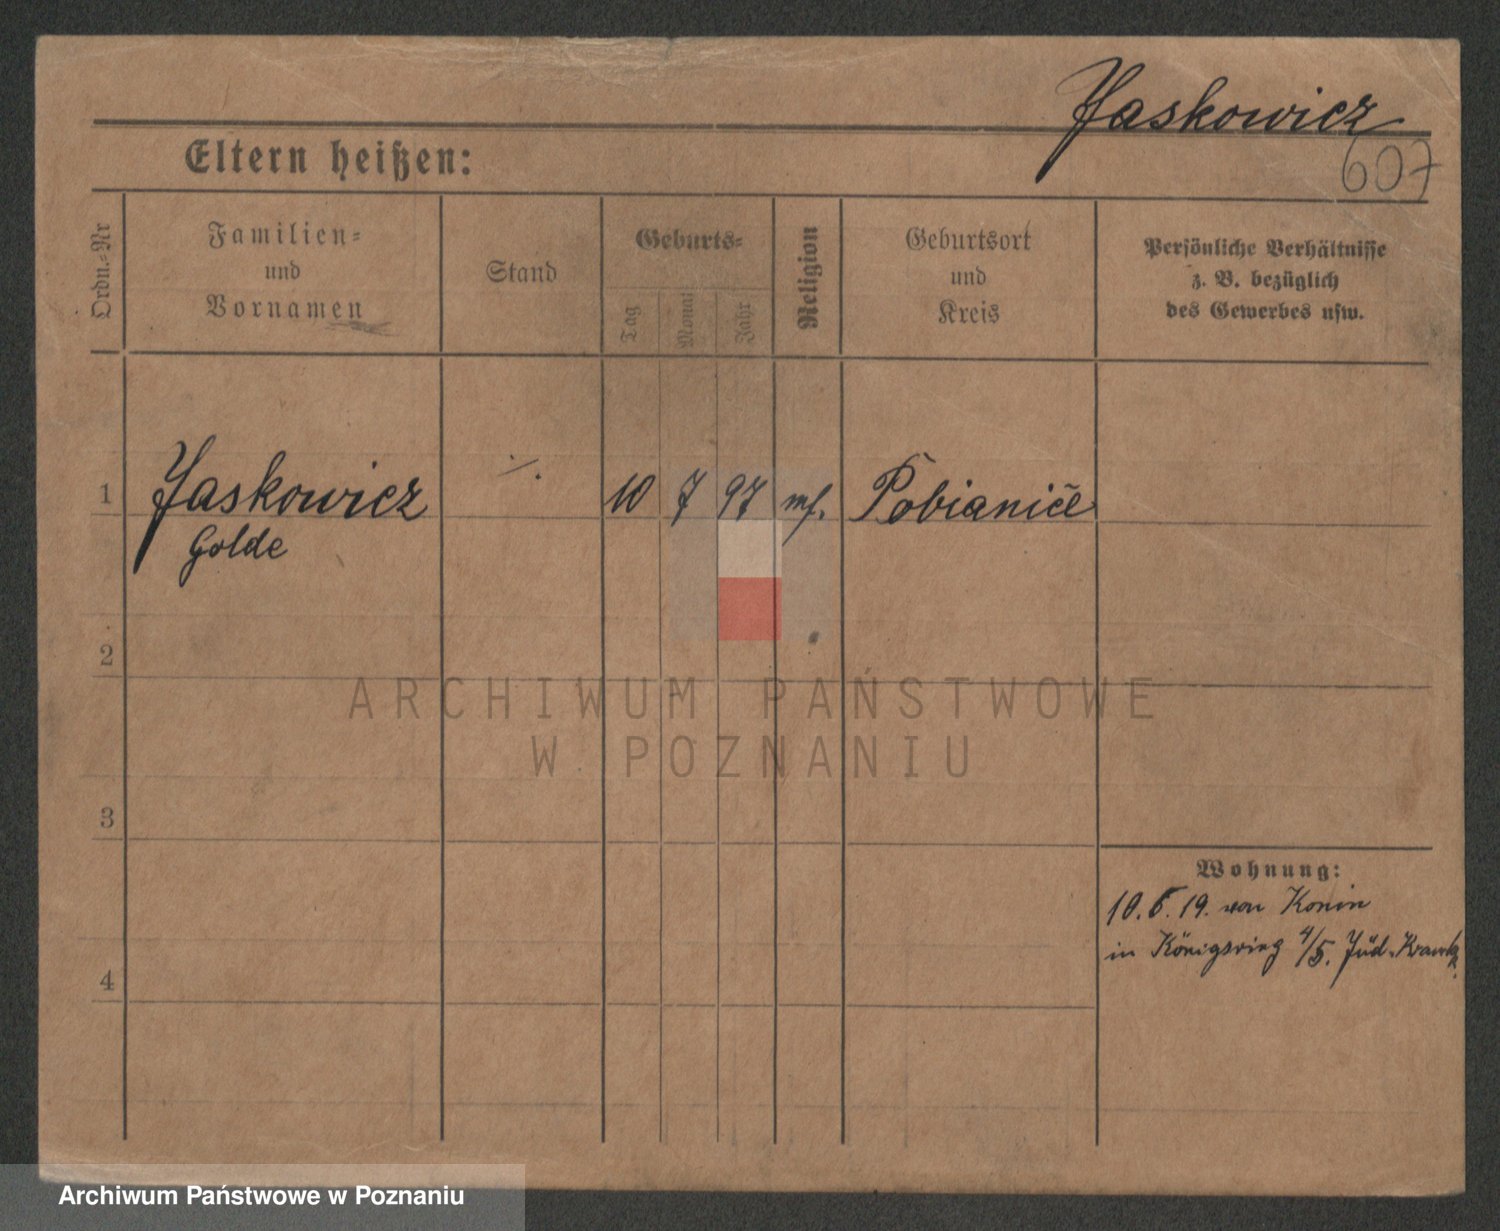 Jaskowicz
607
Eltern heißen:
Ordn.-Nr
Familien-
und
Vornamen
Stand
Geburts-
Tag
Monat
Jahr
Religion
Geburtsort
und
Kreis
Persönliche Verhältnisse
z. B. bezüglich
des Gewerbes usw.
1
Jaskowicz
Golde
10 7 97 mf. Pobianice
2
3
4
Wohnung:
10.6.19. von Konin
in Königsring 4/5. Jüd. Krank.
ARCHIWUM PAŃSTWOWE
W POZNANIU
Archiwum Państwowe w Poznaniu